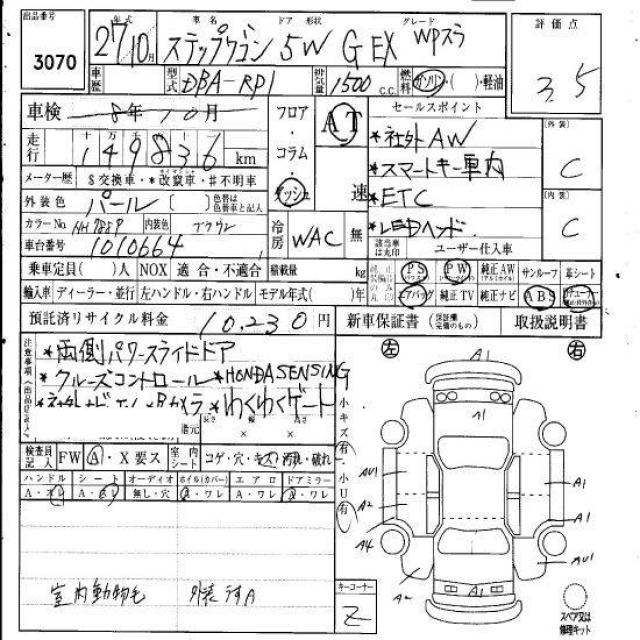 出品番号 3070
年式 車名 ドア 形状 グレード
27 10月 ステップワゴン 5W G EX WPスラ
評価点 3.5
車歴 型式 DBA-RP1 排気量 1500 C.C. 燃料 ガソリン・( )・軽油
車検 8年 10月
フロア・コラム・ダッシュ
AT 速
セールスポイント
走行 十万千百十 149836 km
メーター歴 $交換車・*改竄車・#不明車
*社外AW
*スマートキー車内
*ETC
*LEDヘッド
外装 C
内装 C
外装色 パール [ ] 色替は色替車と記入
カラーNo. NH788P 内装色 ブラウン
車台番号 1010664
冷房 WAC 無
該当車は丸印 ユーザー仕入車
乗車定員( )人 NOX 適合・不適合 積載量 kg
純正装備品の丸印 PS PW 純正AW サンルーフ 革シート
輸入車 ディーラー・並行 左ハンドル・右ハンドル モデル年式( )年
エアバッグ 純正TV 純正ナビ ABS
預託済リサイクル料金 10,230 円
新車保証書 (保証欄完備のもの) 取扱説明書
注意事項(出品店記入)
*両側パワースライドドア
*クルーズコントロール *HONDA SENSING
*わくわくゲート
左 右
長さ 幅 高さ
還元 × ×
小キズ(有)・小U(有)
検査員記入 FW A・X要ス 室内シート コゲ・穴・キズ・汚れ・破れ
ハンドル シート オーディオ ホイル(カバー) エアロ ドアミラー
A・スレ A・ 無し・穴 A・ワレ A・ワレ A・ワレ
室内動物毛 外装 A
A1
A1
AU1 A1
A2 A1
A4 AU1
A2
A1
キーコーナー
Z
スペア又は修理キット